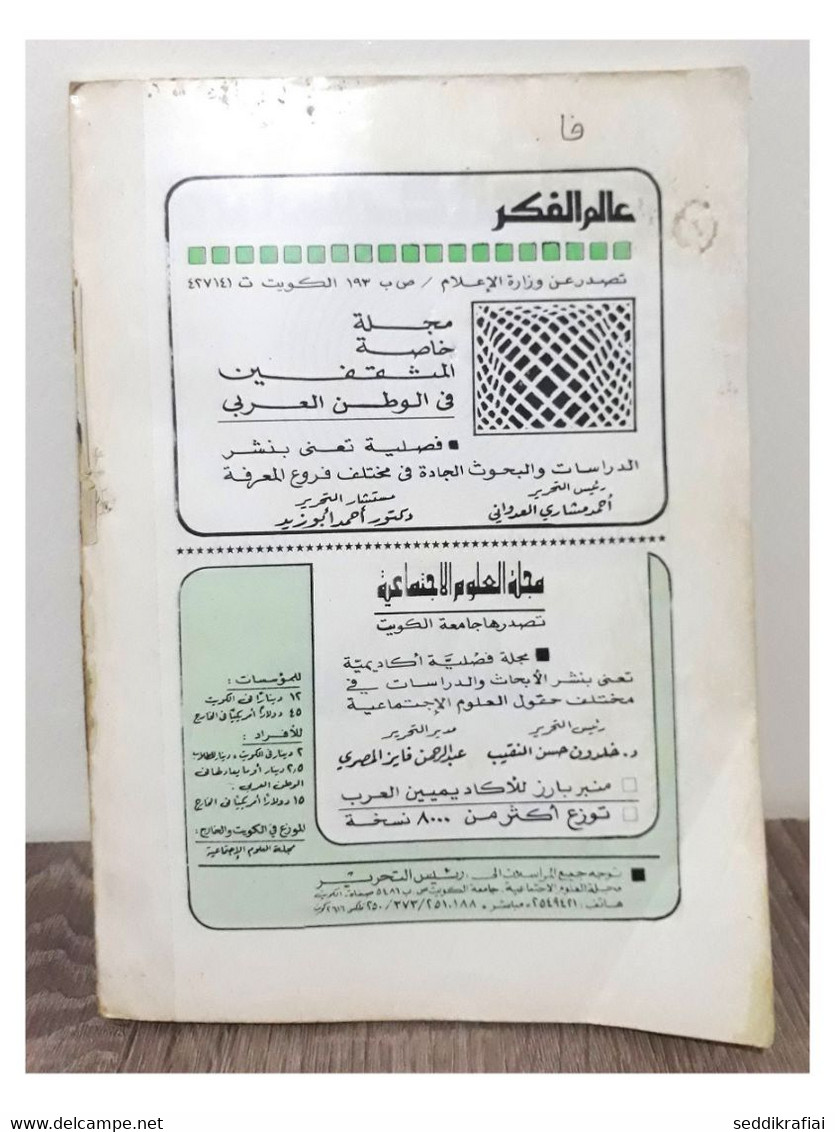 فا
عالم الفكر
تصدر عن وزارة الإعلام / ص ب ١٩٣ الكويت ت ٤٢٧١٤١
مجلة
خاصة
المثقفين
في الوطن العربي
▪ فصلية تعنى بنشر
الدراسات والبحوث الجادة في مختلف فروع المعرفة
رئيس التحرير
أحمد مشاري العدواني
مستشار التحرير
دكتور أحمد أبو زيد
مجلة العلوم الاجتماعية
تصدرها جامعة الكويت
■ مجلة فصليّة أكاديميّة
تعنى بنشر الأبحاث والدراسات في
مختلف حقول العلوم الإجتماعية
رئيس التحرير
د. خلدون حسن النقيب
مدير التحرير
عبدالرحمن فايز المصري
□ منبر بارز للأكاديميين العرب
□ توزع أكثر من ٨٠٠٠ نسخة
للمؤسسات :
١٢ دينارًا في الكويت
٤٥ دولارًا أمريكيًا في الخارج
للأفراد :
٢ دينار في الكويت، دينار للطلاب
٢,٥ دينار أو ما يعادلها في
الوطن العربي.
١٥ دولارًا أمريكيًا في الخارج
للموزع في الكويت والخارج :
مجلة العلوم الإجتماعية
■ توجه جميع المراسلات الى : رئيس التحرير
مجلة العلوم الاجتماعية. جامعة الكويت ص. ب ٥٤٨٦ صفاة، الكويت
هاتف : ٢٥٤٩٤٢١ مباشر
delcampe.net
seddikrafiai